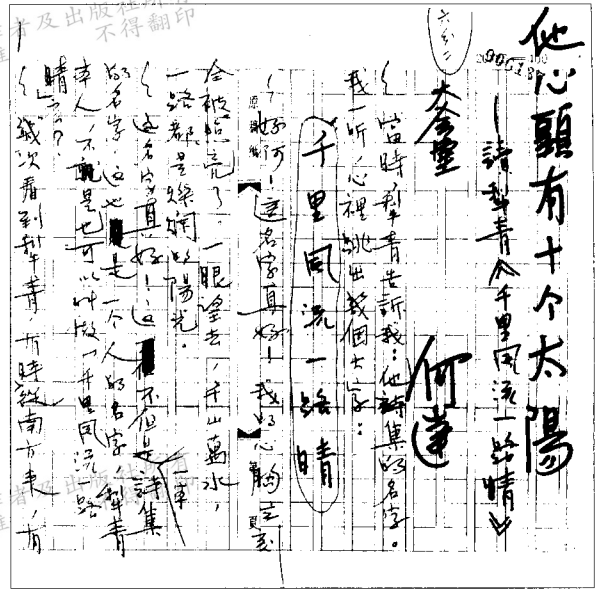 他心頭有十个太陽
—請犁青《千里風流一路情》
六分二
何達
〈當時，犁青告訴我：他詩集的名字。
我一听，心裡跳出幾個大字：
千里風流一路晴
〈好阿！這名字真好！我的心胸立刻
全被照亮了。一眼望去，千山萬水，
一路都是燦爛的陽光。
〈這名字真好！這不但是詩集
的名字，這也是一个人的名字，犁青
本人，不就是也可以叫做「千里風流一路
晴」？
〈幾次看到犁青，有時從南方來，有
作者及出版社所有
不得翻印